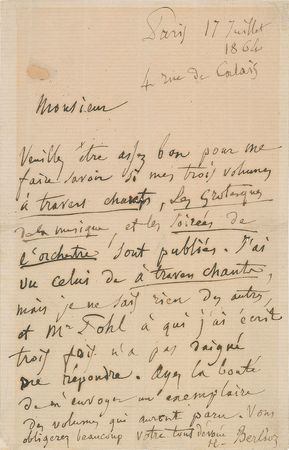 Paris 17 Juillet
1864
4 rue de Calais
Monsieur
Veuillez être assez bon pour me
faire savoir si mes trois volumes
à travers chants, Les Grotesques
de la musique, et les soirées de
l'orchestre sont publiés. J'ai
vu celui de à travers chants,
mais je ne sais rien des autres,
et Mr Pohl à qui j'ai écrit
trois fois n'a pas daigné
me répondre. Ayez la bonté
de m'envoyer un exemplaire
des volumes qui auront paru. Vous
obligerez beaucoup Votre tout dévoué
H. Berlioz